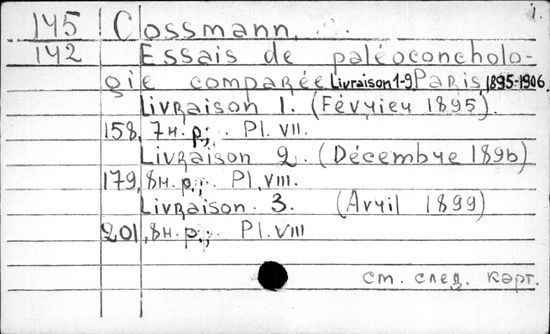 145 Cossmann,
142 Essais de paléoconcholo-
gie comparée Livraison 1-9 Paris, 1895-1906
Livraison 1. (Février 1895).
158, 7н. p.; Pl. VII.
Livraison 2. (Décembre 1896)
179, 8н. p.; Pl. VIII.
Livraison 3. (Avril 1899)
201, 8н. p.; Pl. VIII
см. след. карт.